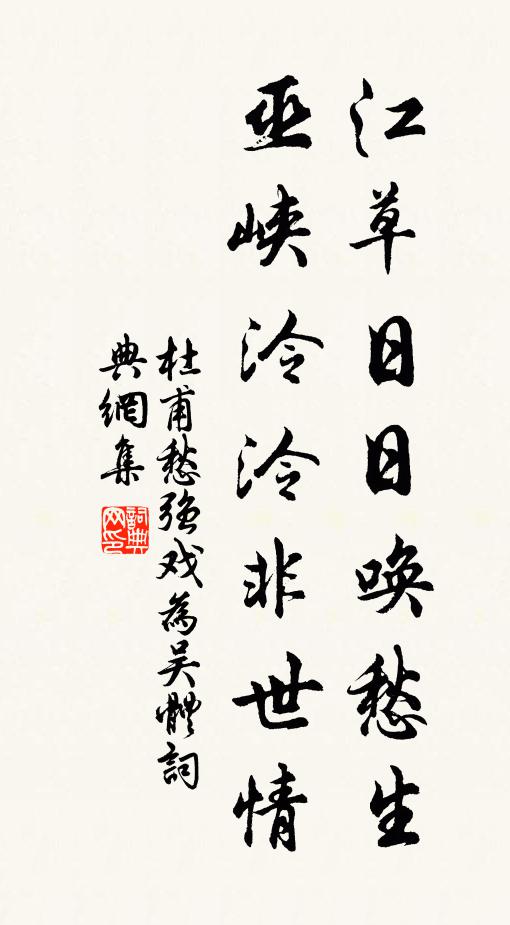 江草日日唤愁生
巫峡泠泠非世情
杜甫愁强戏为吴體詞
典網集
詞典网印